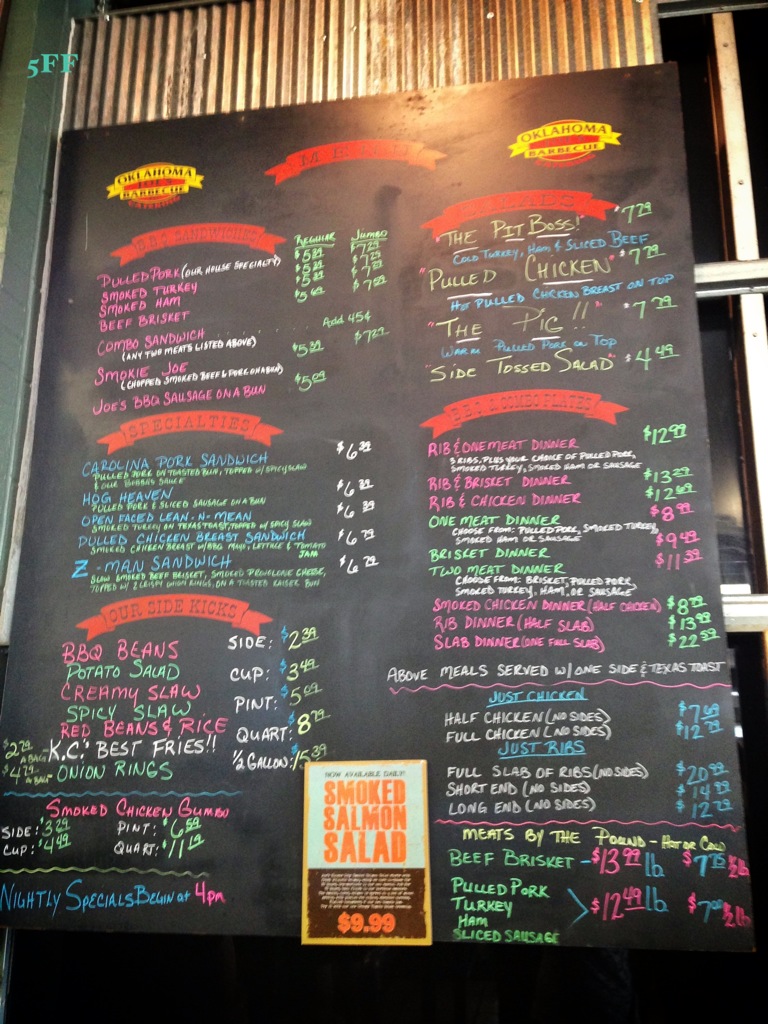 5FF
OKLAHOMA
JOE'S
BARBECUE
CATERING
MENU
OKLAHOMA
BARBECUE
B.B.Q. SANDWICHES
REGULAR JUMBO
PULLED PORK (OUR HOUSE SPECIALTY)
SMOKED TURKEY
SMOKED HAM
BEEF BRISKET
Add 45¢
COMBO SANDWICH
(ANY TWO MEATS LISTED ABOVE)
SMOKIE JOE
(CHOPPED SMOKED BEEF & PORK ON A BUN)
JOE'S BBQ SAUSAGE ON A BUN
SPECIALTIES
CAROLINA PORK SANDWICH $6.39
PULLED PORK ON TOASTED BUN, TOPPED W/ SPICY SLAW
HOG HEAVEN $6.39
PULLED PORK & SLICED SAUSAGE ON A BUN
OPEN FACED LEAN-N-MEAN $6.39
SMOKED TURKEY ON TEXAS TOAST, TOPPED W/ SPICY SLAW
PULLED CHICKEN BREAST SANDWICH $6.79
SMOKED CHICKEN BREAST W/BBQ MAYO, LETTUCE & TOMATO
JAM
Z-MAN SANDWICH $6.79
SLOW SMOKED BEEF BRISKET, SMOKED PROVOLONE CHEESE,
TOPPED W/ 2 CRISPY ONION RINGS, ON A TOASTED KAISER BUN
OUR SIDE KICKS
BBQ BEANS
POTATO SALAD
CREAMY SLAW
SPICY SLAW
RED BEANS & RICE
$2.79 A BAG - K.C.' BEST FRIES!!
$4.79 A BAG - ONION RINGS
SIDE: $2.39
CUP: $3.49
PINT: $5.09
QUART: $8.79
½ GALLON: 15.39
SMOKED CHICKEN GUMBO
SIDE: $3.29 PINT: $6.59
CUP: $4.49 QUART: $11.19
NIGHTLY SPECIALS BEGIN at 4pm
SALADS
"THE PIT BOSS! $7.29
COLD TURKEY, HAM & SLICED BEEF
"PULLED CHICKEN" $7.79
HOT PULLED CHICKEN BREAST ON TOP
"THE PIG!!" $7.29
WARM PULLED PORK ON TOP
"SIDE TOSSED SALAD" $4.49
B.B.Q. & COMBO PLATES
RIB & ONE MEAT DINNER $12.99
3 RIBS, PLUS YOUR CHOICE OF PULLED PORK,
SMOKED TURKEY, SMOKED HAM OR SAUSAGE
RIB & BRISKET DINNER $13.29
RIB & CHICKEN DINNER $12.69
ONE MEAT DINNER $8.99
CHOOSE FROM: PULLED PORK, SMOKED TURKEY,
SMOKED HAM OR SAUSAGE
BRISKET DINNER $9.49
TWO MEAT DINNER $11.59
CHOOSE FROM: BRISKET, PULLED PORK,
SMOKED TURKEY, HAM, OR SAUSAGE
SMOKED CHICKEN DINNER (HALF CHICKEN) $8.79
RIB DINNER (HALF SLAB) $13.99
SLAB DINNER (ONE FULL SLAB) $22.59
ABOVE MEALS SERVED W/ ONE SIDE & TEXAS TOAST
JUST CHICKEN
HALF CHICKEN (NO SIDES) $7.69
FULL CHICKEN (NO SIDES) $12.79
JUST RIBS
FULL SLAB OF RIBS (NO SIDES) $20.99
SHORT END (NO SIDES) $14.99
LONG END (NO SIDES) $12.79
MEATS BY THE POUND - HOT OR COLD
BEEF BRISKET - $13.99 lb $7.75 ½ lb
PULLED PORK
TURKEY
HAM
SLICED SAUSAGE
$12.49 lb
NOW AVAILABLE DAILY!
SMOKED
SALMON
SALAD
$9.99